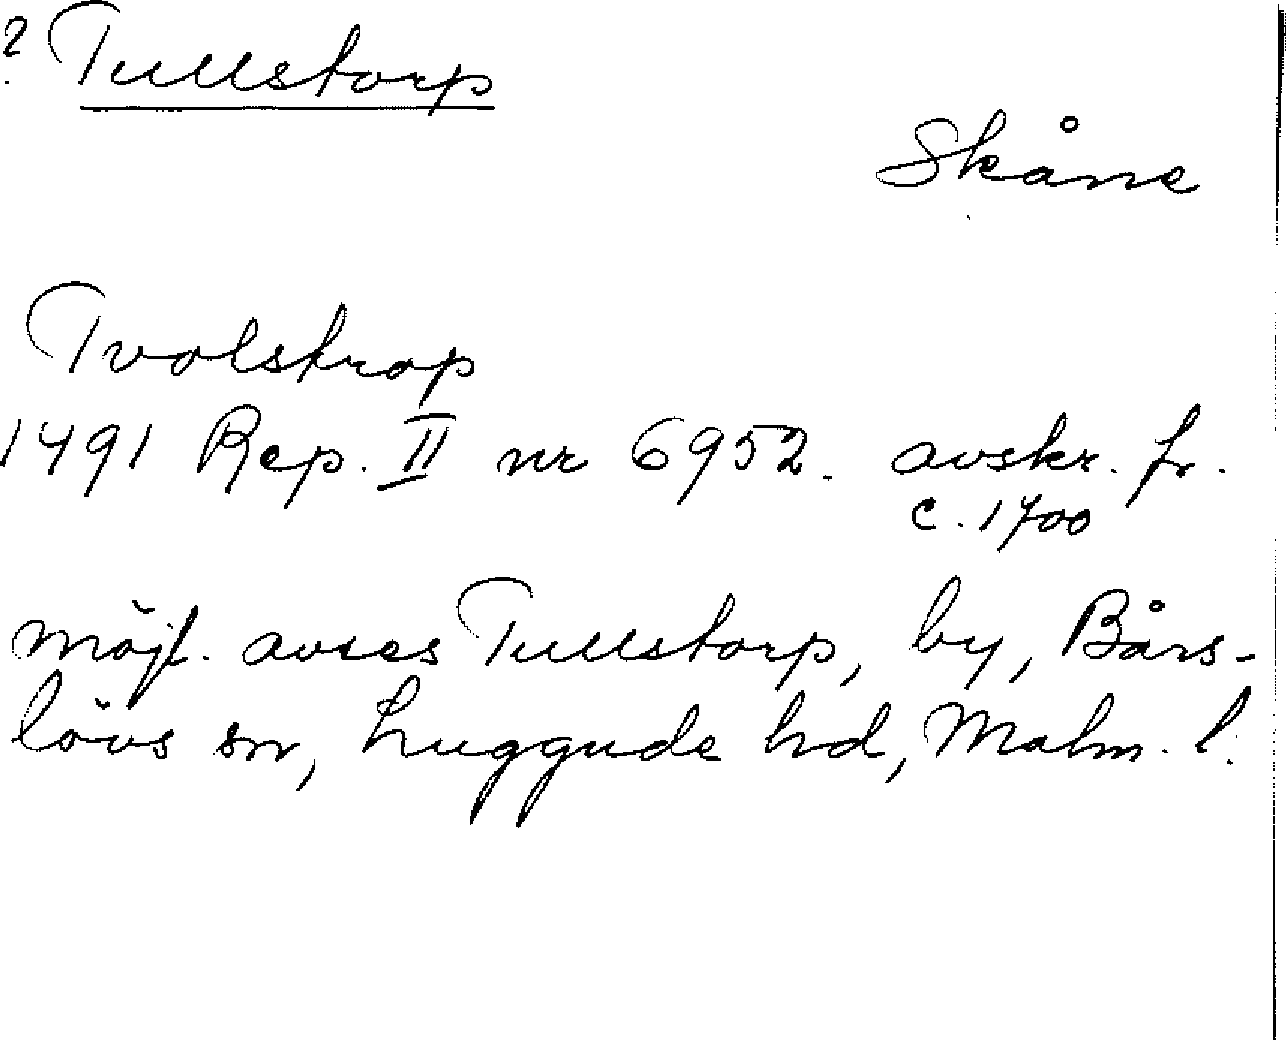 ? Tullstorp
Skåne
Tvolstrop
1491 Rep. II nr 6952. avskr. fr.
c. 1700
möjl. avses Tullstorp, by, Bårs-
lövs sn, Luggude hd, Malm. l.